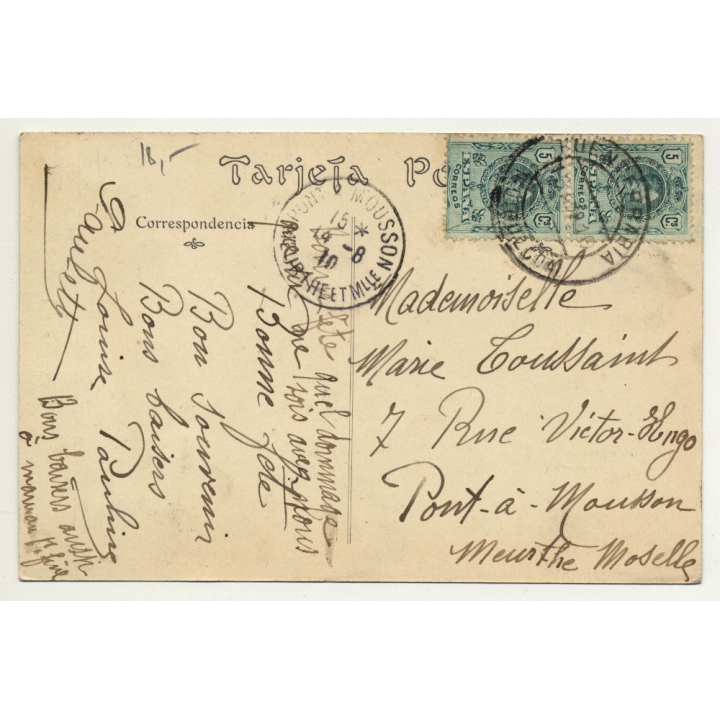 18,-
Tarjeta Po
Correspondencia
5 CS
ESPAÑA
CORREOS
5 CS
ESPAÑA
CORREOS
FUENTERRABIA
PONT-A-MOUSSON
15 *
14 - 8
10
MEURTHE ET MLLE
Mademoiselle
Marie Toussaint
7 Rue Victor-Hugo
Pont-à-Mousson
Meurthe Moselle
quel dommage
que ne sois avec nous
Bonne fête
Bon souvenir
Bons baisers
Louise Pauline
Paulette
Bons baisers aussi
à maman